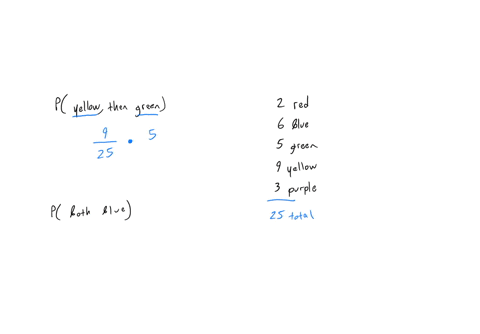 P( yellow, then green)
9/25 • 5
P( Both Blue)
2 red
6 Blue
5 green
9 yellow
3 purple
25 total